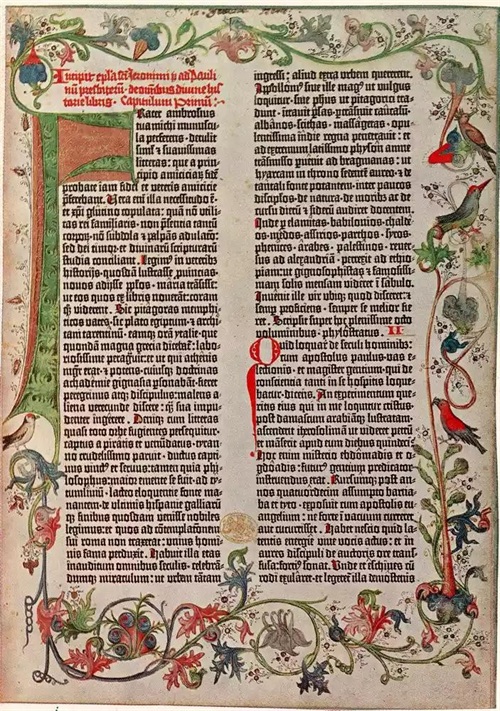 Incipit epl̃a sc̃i Jeronimi ꝑ̃ ad Pauli
nū presbiterū: de omībus divine his
torie libris. Capitulum Primū:
Frater ambrosius
tua michi munuscu
la perferens. detulit
simł et suavissimas
litteras: que a prin
cipio amiciciaȝ fidē
probate iam fidei et veteris amicicie
p̄ferebant. Vera em̄ illa necessitudo ē·
et xp̄i glutino copulata: quā nō utili-
tas rei familiaris. nō presētia tantū
corpoȝ·nō subdola et palpās adulaco·
sed dei timor·et divinaȝ scripturarū
studia conciliant. Legim9 in veteribȝ
historijs·quosdā lustrasse ꝓvincias·
novos adijsse ꝓplos·maria trāsisse:
ut eos quos ex libris noverāt:coram
qȝ viderent. Sic pitagoras memphi
ticos vates·sic plato egiptum·et archi
tam tarentinū·eamqȝ orā ytalie·que
quondā magna grecia dicebat̄: labo
riosissime peragravit: et ut qui athenis
mgr̄ erat·et potens·cuiusqȝ doctrinas
achademie gignasia ꝑsonabāt·fieret
peregrinus atqȝ discipulus:malens a-
liena verecunde discere: qȝ sua impu
denter ingerere. Deniqȝ cum litteras
quasi toto orbe fugientes ꝑsequit̄ur:
captus a piratis et venūdatus·tyrān
no crudelissimo paruit·ductus capti
vus vinct9 et servus:tamen quia phi
losophus:maior emente se fuit·ad ty-
tumlivū·lacteo eloquentie fonte ma
nantem·de ultimis hispanie galliarū
qȝ finibus quosdam venisse nobiles
legimus:et quos ad contēplationem
sui roma non traxerat: unius homi-
nis fama perduxit. Habuit illa etas
inauditum omnibus seculis·celebrā-
dumqȝ miraculum: ut urbem tātam
ingressi: aliud extra urbem quererent.
Apolloni9 sive ille mag9 ut vulgus
loquitur·sive phus ut pitagorici tra-
dunt·itravit ꝑsas·ꝑtrāsivit caucasū·
albānos·scithas·massagetas·opu-
lentissima indie regna penetravit: et
ad extremum latissimo physon amne
trāsmisso ꝑvenit ad bragmanas: ut
hyarcam in throno sedentē aureo·et de
tantali fonte potantem·inter paucos
discipłos·de natura·de moribȝ ac de
cursu dierū et siderū audiret docentem.
Inde ꝑ elamitas·babilonios·chalde-
os·medos·assirios·parthos·syros·
phenices·arabes·palestinos·rever-
sus ad alexandriā·perrexit ad ethio-
piam:ut gignosophistas et famosissi-
mam solis mensam videret ī sabulo.
Invenit ille vir ubiqȝ quod disceret:et
semper proficiens·semper se melior fie-
ret. Scripsit super hoc plenissime octo
voluminibus·phylostratus. II
Quid loquar de seculi hominibȝ:
cum apostolus paulus·vas e-
lectionis·et magister gentium·qui de
conscientia tanti in se hospitis loque
batur·dicens. An experimentum que-
ritis eius qui in me loquitur cristus·
post damascum arabiāqȝ lustratam·
ascenderit iherosolimā ut videret petrū
et māserit apud eum diebus quindeci.
Hoc enim misterio ebdomadis et o-
gdoadis:futur9 gentium predicator
instruendus erat. Rursumqȝ post an-
nos quatuordecim assumpto barna-
ba et tyto·exposuit cum apostolis eu-
angelium: ne forte ī vacuum curreret
aut cucurrisset. Habet nescio quid la-
tentis energie vive vocis actus: et in
aures discipuli de auctoris ore trans-
fusa:fortius sonat. Unde et eschines cū
rodi exularet·et legeretur illa demostenis